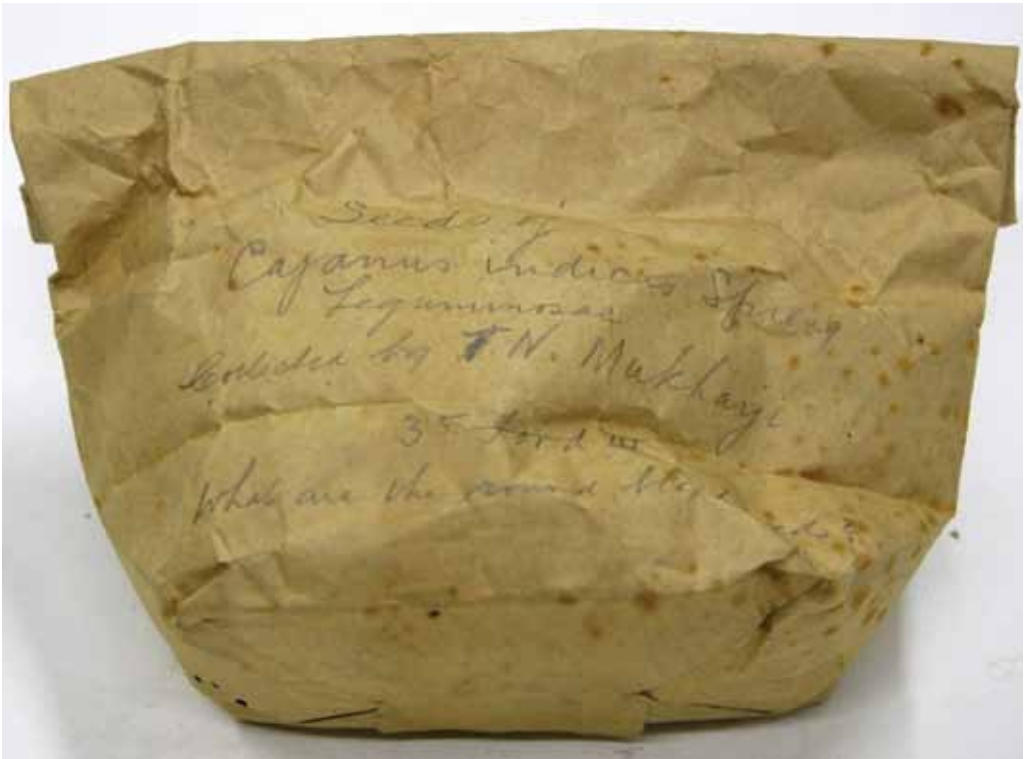 Seeds of
Cajanus indicus Spreng
Leguminosae
Collected by T. N. Mukharji
3
What are the round